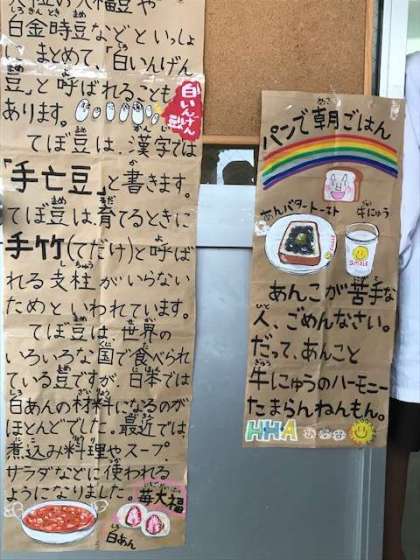 白金時豆などといっしょ
にまとめて、「白いんげん
豆」と呼ばれることも
あります。
白いんげん豆
てぼ豆は、漢字では
「手亡豆」と書きます。
てぼ豆は、育てるときに
手竹(てだけ)と呼ば
れる支柱がいらない
ためといわれています。
てぼ豆は、世界の
いろいろな国で食べられ
ている豆ですが、日本では
白あんの材料になるのが
ほとんどでした。最近では
煮込み料理やスープ、
サラダなどに使われる
ようになりました。
苺大福
白あん
パンで朝ごはん
あんバタートースト
牛にゅう
SMILE
あんこが苦手な
人、ごめんなさい。
だって、あんこと
牛にゅうのハーモニー
たまらんねんもん。
HHA